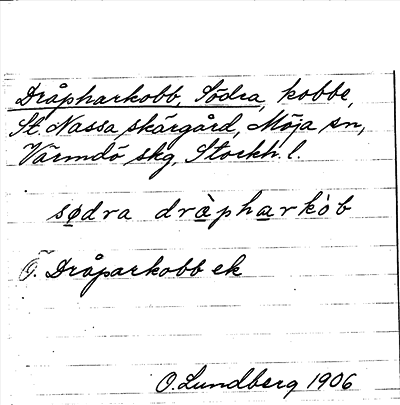 Dråpharkobb, Södra, kobbe,
St. Nassa skärgård, Möja sn,
Värmdö skg, Stockh. l.
sødra dràpharkòb
Ö. Dråparkobb ek
O. Lundberg 1906